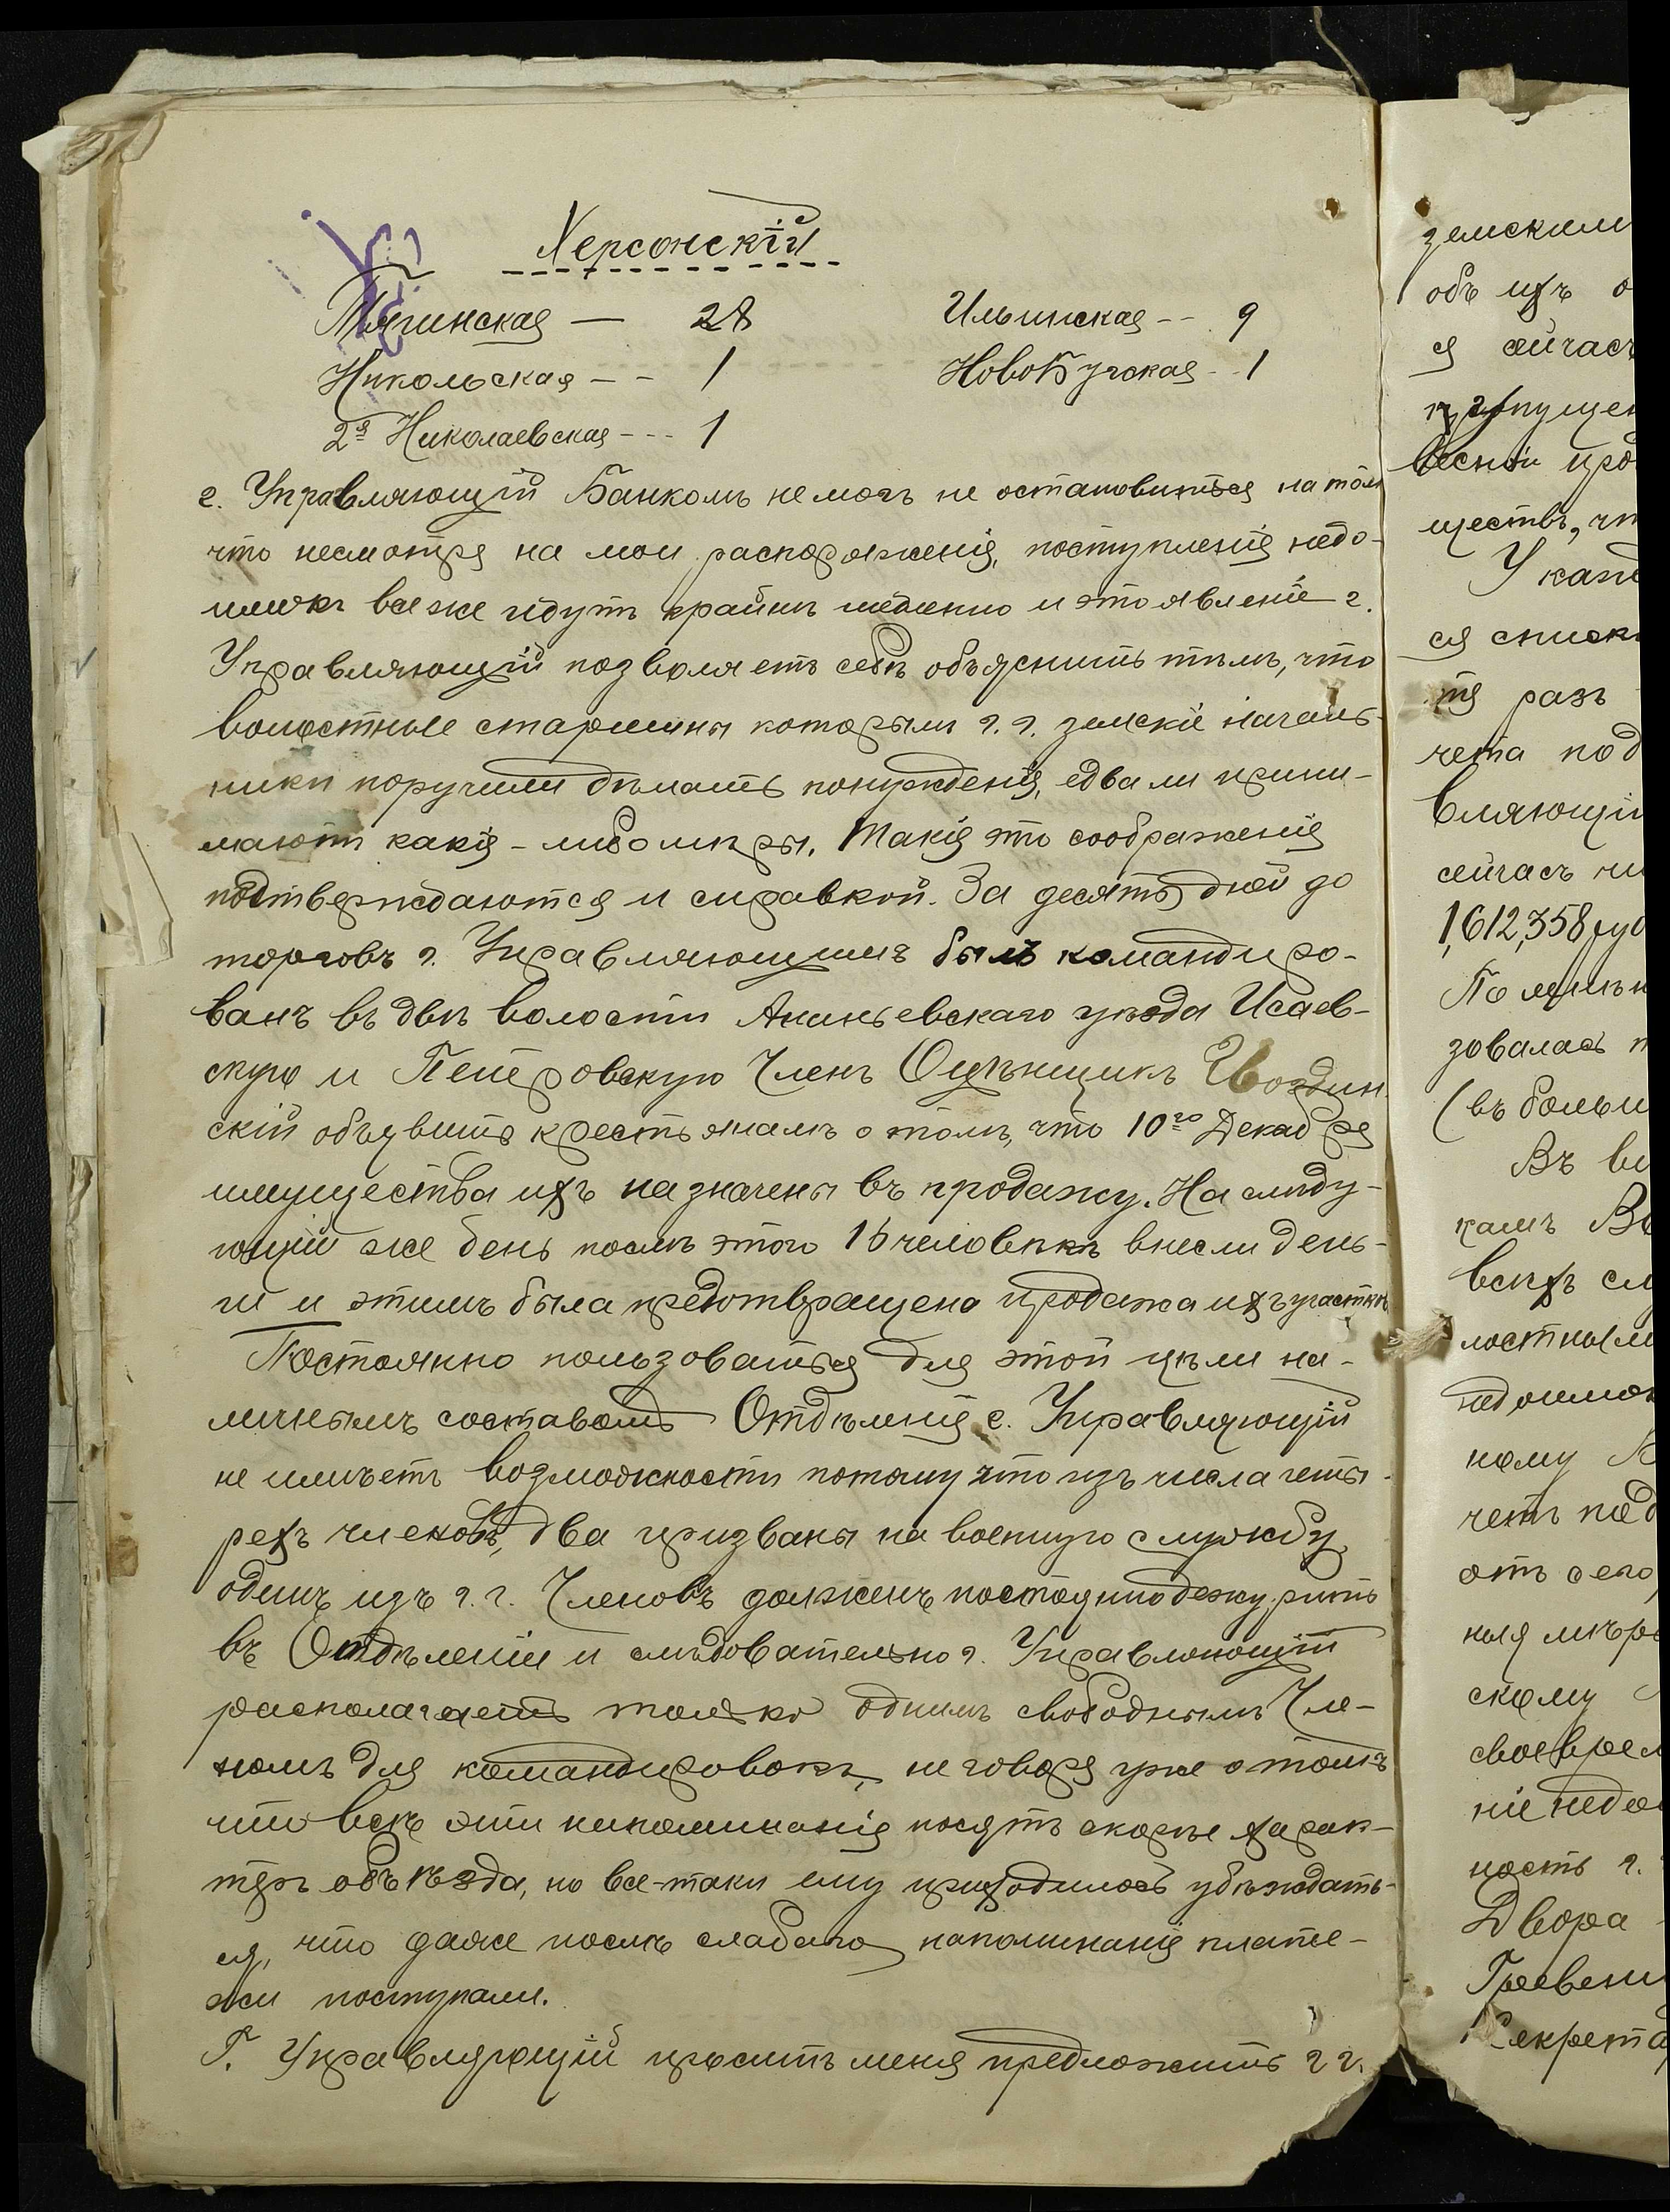 Херсонскій
Тягинская — 28 Ильинская -- 9
Никольская -- 1 НовоБугская - 1
2я Николаевская --- 1
г. Управляющій Банкомъ не могъ не остановиться на томъ
что несмотря на мои распоряженія, поступленія недо-
имокъ все же идутъ крайнѣ медленно и это явленіе г.
Управляющій позволяетъ себѣ объяснить тѣмъ, что
волостные старшины которымъ г.г. земскіе началь-
ники поручили дѣлать понужденія, едва ли прини-
маютъ какія-либо мѣры. Такія это соображенія
подтверждаются и справкой. За десять дней до
торговъ г. Управляющимъ былъ командиро-
ванъ въ двѣ волости Ананьевскаго уѣзда Исаев-
скую и Петровскую Членъ Оцѣнщикъ Гвоздин-
скій объявить крестьянамъ о томъ, что 10го Декабря
имущества ихъ назначены въ продажу. На слѣду-
ющій же день послѣ этого 16 человѣкъ внесли день-
ги и этимъ была предотвращена продажа ихъ участковъ
Постоянно пользоваться для этой цѣли на-
личнымъ составомъ Отдѣленія г. Управляющій
не имѣетъ возможности потому что изъ числа четы-
рехъ членовъ, два призваны на военную службу,
одинъ изъ г.г. Членовъ долженъ постоянно дежурить
въ Отдѣленіи и слѣдовательно г. Управляющій
располагаетъ только однимъ свободнымъ Чле-
номъ для командировокъ, не говоря уже о томъ
что всѣ эти напоминанія носятъ скорѣе харак-
теръ объѣзда, но все-таки ему приходилось убѣждать-
ся, что даже послѣ слабаго напоминанія плате-
жи поступали.
Г. Управляющій проситъ меня предложить г г.
земским
объ ихъ о
ся сейчасъ
весной про
ществъ, чт
У каж
ся списк
тя разъ
чета под
вляющій
сейчасъ чи
1,612,358 руб
По
зовалась п
(въ больш
Въ ви
камъ Во
всѣхъ сл
лостнымъ
недоимок
ному В
четъ под
отъ сего,
ныя мѣры
скому
своеврем
ніе недои
ность г.
Двора
Гревени
Секрета